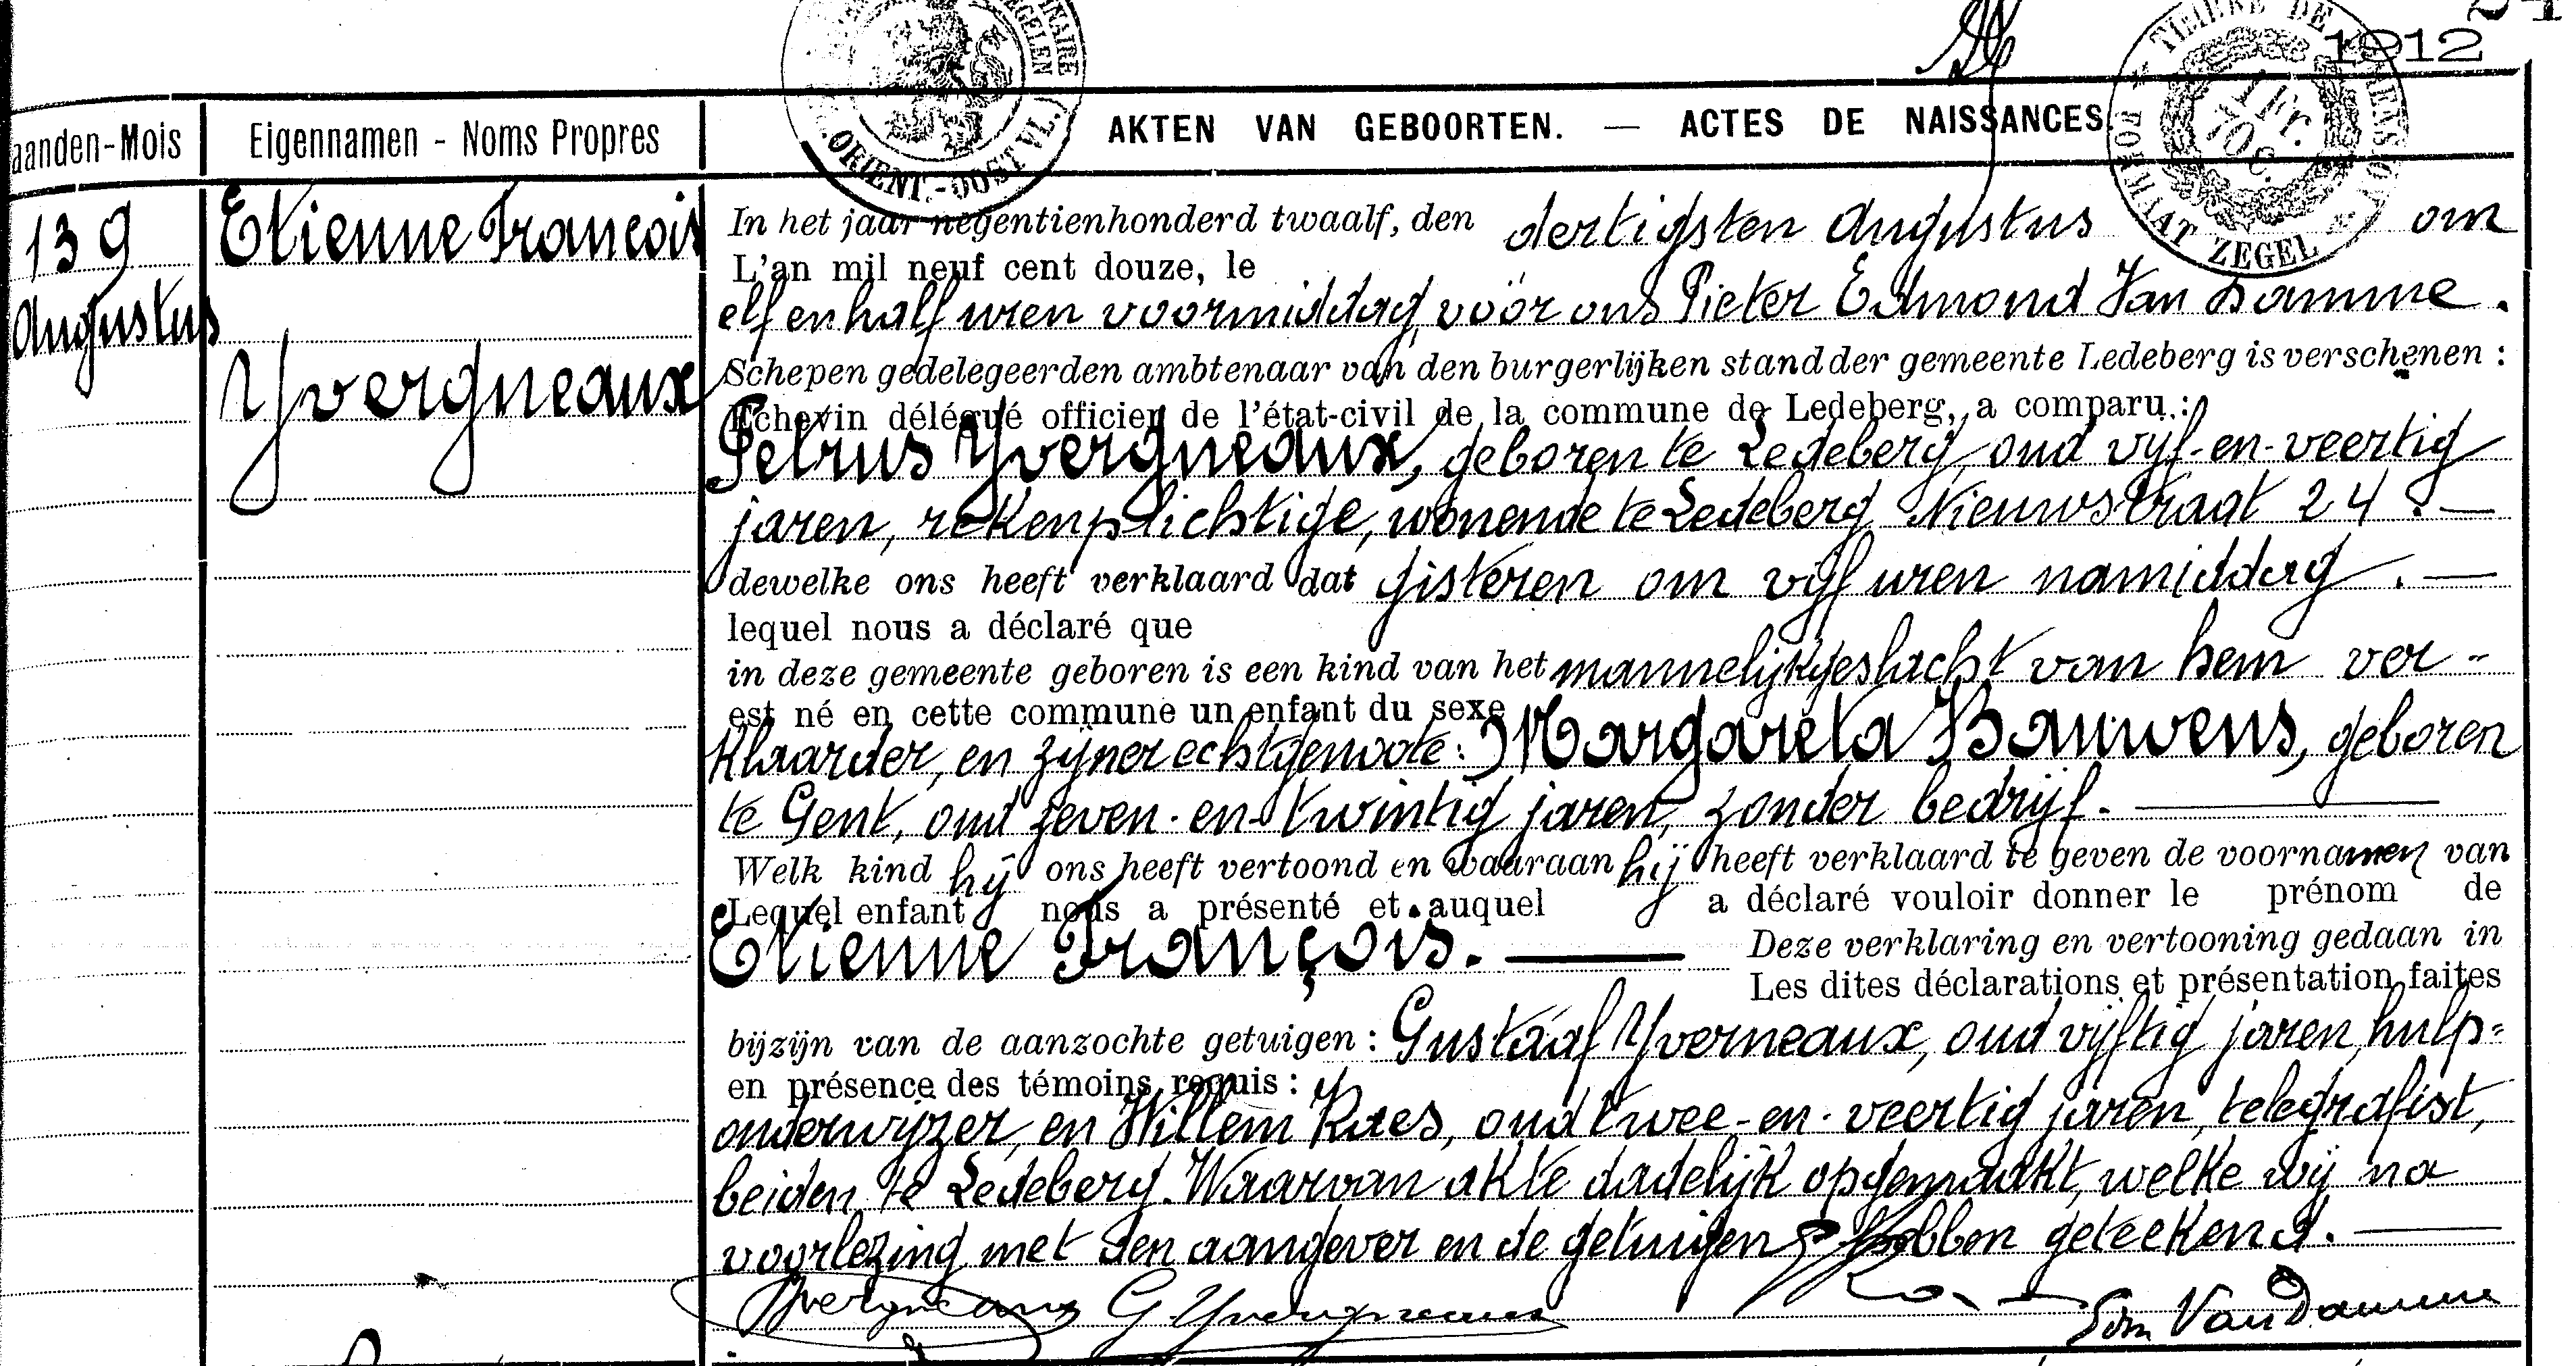 1912
TIMBRE DE DIMENSION
1 fr. 70 c.
FORMAAT ZEGEL
ORIENT.-OOST VL.
aanden-Mois
Eigennamen - Noms Propres
AKTEN VAN GEBOORTEN. — ACTES DE NAISSANCES.
139
Augustus
Etienne Francois
Yvergneaux
In het jaar negentienhonderd twaalf, den dertigsten Augustus om
L'an mil neuf cent douze, le
elf en half uren voormiddag, voor ons Pieter Edmond Van Damme.
Schepen gedelegeerden ambtenaar van den burgerlijken stand der gemeente Ledeberg is verschenen :
Echevin délégué officier de l'état-civil de la commune de Ledeberg, a comparu :
Petrus Yvergneaux, geboren te Ledeberg, oud vijf-en-veertig
jaren, rekenplichtige, wonende te Ledeberg Nieuwstraat 24. —
dewelke ons heeft verklaard dat gisteren om vijf uren namiddag. —
lequel nous a déclaré que
in deze gemeente geboren is een kind van het mannelijk geslacht van hem ver-
est né en cette commune un enfant du sexe
klaarder, en zijner echtgenoote: Margareta Bauwens, geboren
te Gent, oud zeven-en-twintig jaren, zonder bedrijf. —
Welk kind hij ons heeft vertoond en waaraan hij heeft verklaard te geven de voornamen van
Lequel enfant nous a présenté et auquel a déclaré vouloir donner le prénom de
Etienne François. — Deze verklaring en vertooning gedaan in
Les dites déclarations et présentation faites
bijzijn van de aanzochte getuigen : Gustaaf Yverneaux, oud vijftig jaren, hulp-
en présence des témoins requis :
onderwijzer, en Willem Raes, oud twee-en-veertig jaren, telegrafist,
beiden te Ledeberg. Waarvan akte dadelijk opgemaakt, welke wij na
voorlezing met den aangever en de getuigen hebben geteekend. —
Yvergneaux G. Yvergneaux Edm Van Damme